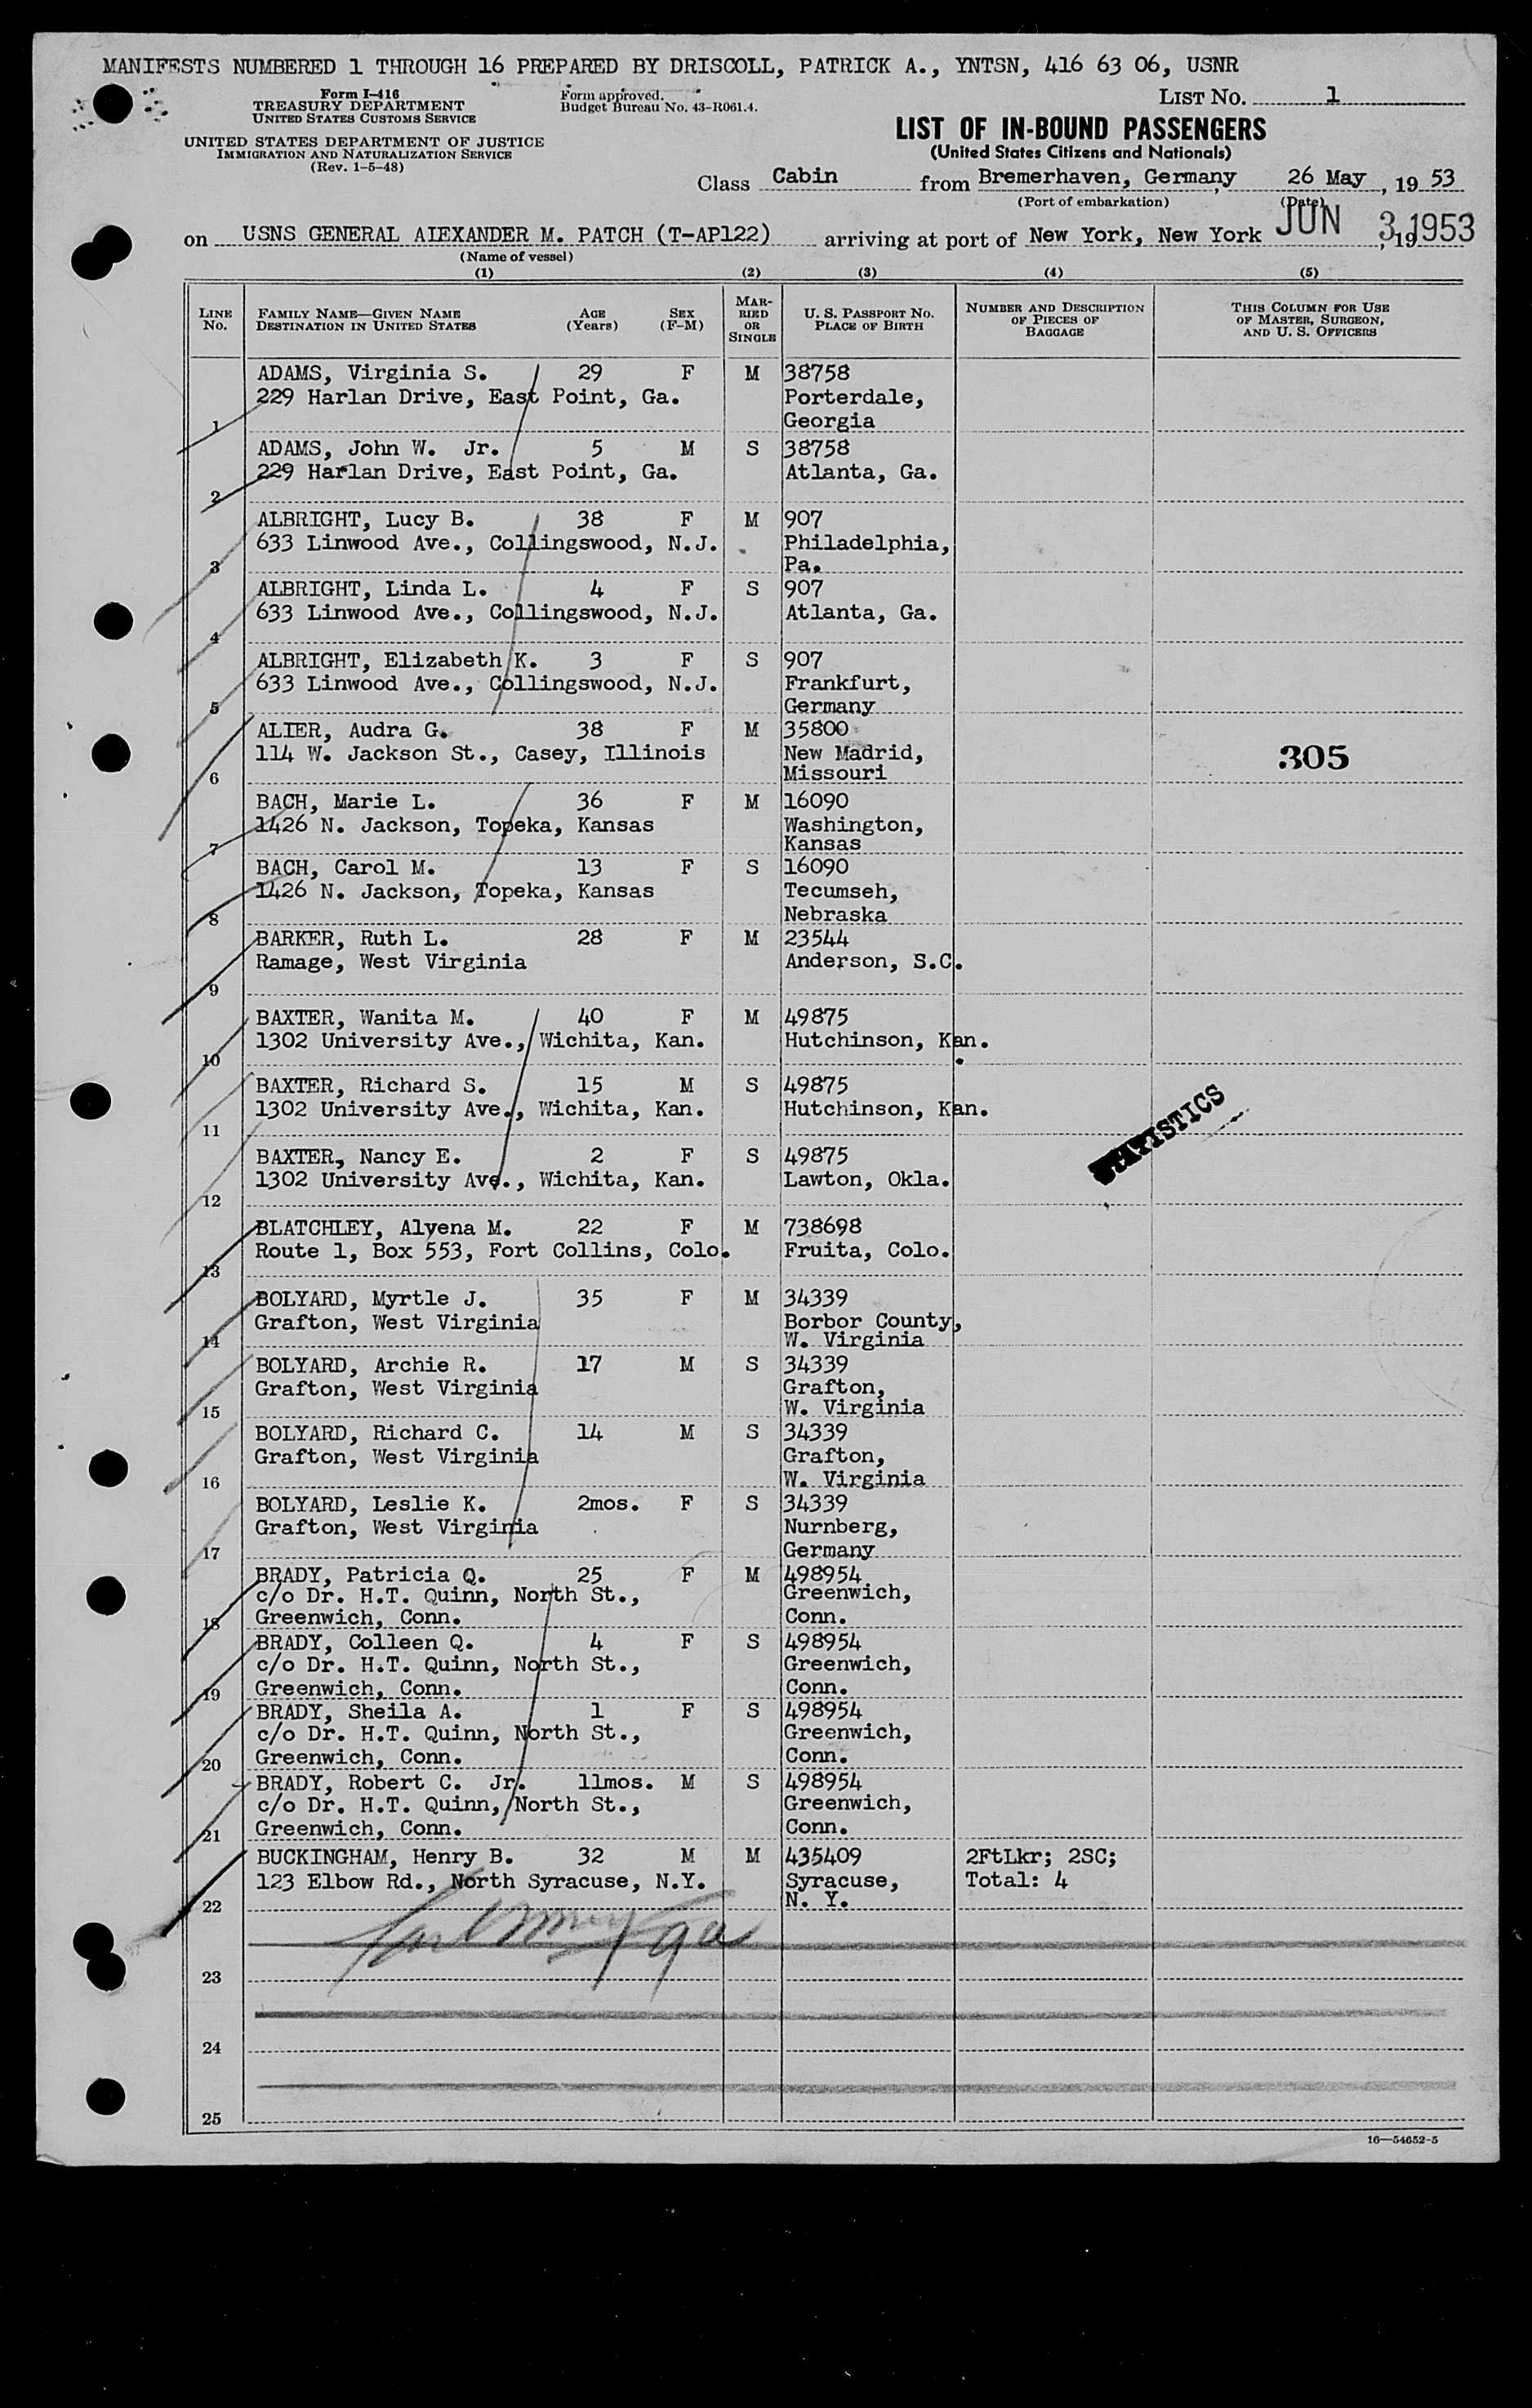 MANIFESTS NUMBERED 1 THROUGH 16 PREPARED BY DRISCOLL, PATRICK A., YNTSN, 416 63 06, USNR
Form I-416
TREASURY DEPARTMENT
UNITED STATES CUSTOMS SERVICE
UNITED STATES DEPARTMENT OF JUSTICE
IMMIGRATION AND NATURALIZATION SERVICE
(Rev. 1-5-48)
Form approved.
Budget Bureau No. 43-R061.4.
LIST NO. 1
LIST OF IN-BOUND PASSENGERS
(United States Citizens and Nationals)
Class Cabin from Bremerhaven, Germany, 26 May, 19 53
(Port of embarkation) (Date)
on USNS GENERAL ALEXANDER M. PATCH (T-AP122) arriving at port of New York, New York JUN 3 1953, 19
(Name of vessel)
(1) (2) (3) (4) (5)
LINE NO. FAMILY NAME—GIVEN NAME DESTINATION IN UNITED STATES AGE (Years) SEX (F-M) MARRIED OR SINGLE U. S. PASSPORT NO. PLACE OF BIRTH NUMBER AND DESCRIPTION OF PIECES OF BAGGAGE THIS COLUMN FOR USE OF MASTER, SURGEON, AND U. S. OFFICERS
ADAMS, Virginia S. 29 F M 38758
229 Harlan Drive, East Point, Ga. Porterdale,
1 Georgia
ADAMS, John W. Jr. 5 M S 38758
229 Harlan Drive, East Point, Ga. Atlanta, Ga.
2
ALBRIGHT, Lucy B. 38 F M 907
633 Linwood Ave., Collingswood, N.J. Philadelphia,
3 Pa.
ALBRIGHT, Linda L. 4 F S 907
633 Linwood Ave., Collingswood, N.J. Atlanta, Ga.
4
ALBRIGHT, Elizabeth K. 3 F S 907
633 Linwood Ave., Collingswood, N.J. Frankfurt,
5 Germany
ALIER, Audra G. 38 F M 35800
114 W. Jackson St., Casey, Illinois New Madrid, 305
6 Missouri
BACH, Marie L. 36 F M 16090
1426 N. Jackson, Topeka, Kansas Washington,
7 Kansas
BACH, Carol M. 13 F S 16090
1426 N. Jackson, Topeka, Kansas Tecumseh,
8 Nebraska
BARKER, Ruth L. 28 F M 23544
Ramage, West Virginia Anderson, S.C.
9
BAXTER, Wanita M. 40 F M 49875
1302 University Ave., Wichita, Kan. Hutchinson, Kan.
10
BAXTER, Richard S. 15 M S 49875
1302 University Ave., Wichita, Kan. Hutchinson, Kan.
11 STATISTICS
BAXTER, Nancy E. 2 F S 49875
1302 University Ave., Wichita, Kan. Lawton, Okla.
12
BLATCHLEY, Alyena M. 22 F M 738698
Route 1, Box 553, Fort Collins, Colo. Fruita, Colo.
13
BOLYARD, Myrtle J. 35 F M 34339
Grafton, West Virginia Borbor County,
14 W. Virginia
BOLYARD, Archie R. 17 M S 34339
Grafton, West Virginia Grafton,
15 W. Virginia
BOLYARD, Richard C. 14 M S 34339
Grafton, West Virginia Grafton,
16 W. Virginia
BOLYARD, Leslie K. 2mos. F S 34339
Grafton, West Virginia Nurnberg,
17 Germany
BRADY, Patricia Q. 25 F M 498954
c/o Dr. H.T. Quinn, North St., Greenwich,
18 Greenwich, Conn. Conn.
BRADY, Colleen Q. 4 F S 498954
c/o Dr. H.T. Quinn, North St., Greenwich,
19 Greenwich, Conn. Conn.
BRADY, Sheila A. 1 F S 498954
c/o Dr. H.T. Quinn, North St., Greenwich,
20 Greenwich, Conn. Conn.
BRADY, Robert C. Jr. 11mos. M S 498954
c/o Dr. H.T. Quinn, North St., Greenwich,
21 Greenwich, Conn. Conn.
BUCKINGHAM, Henry B. 32 M M 435409 2FtLkr; 2SC;
123 Elbow Rd., North Syracuse, N.Y. Syracuse, Total: 4
22 N. Y.
23
24
25
16—54652-5